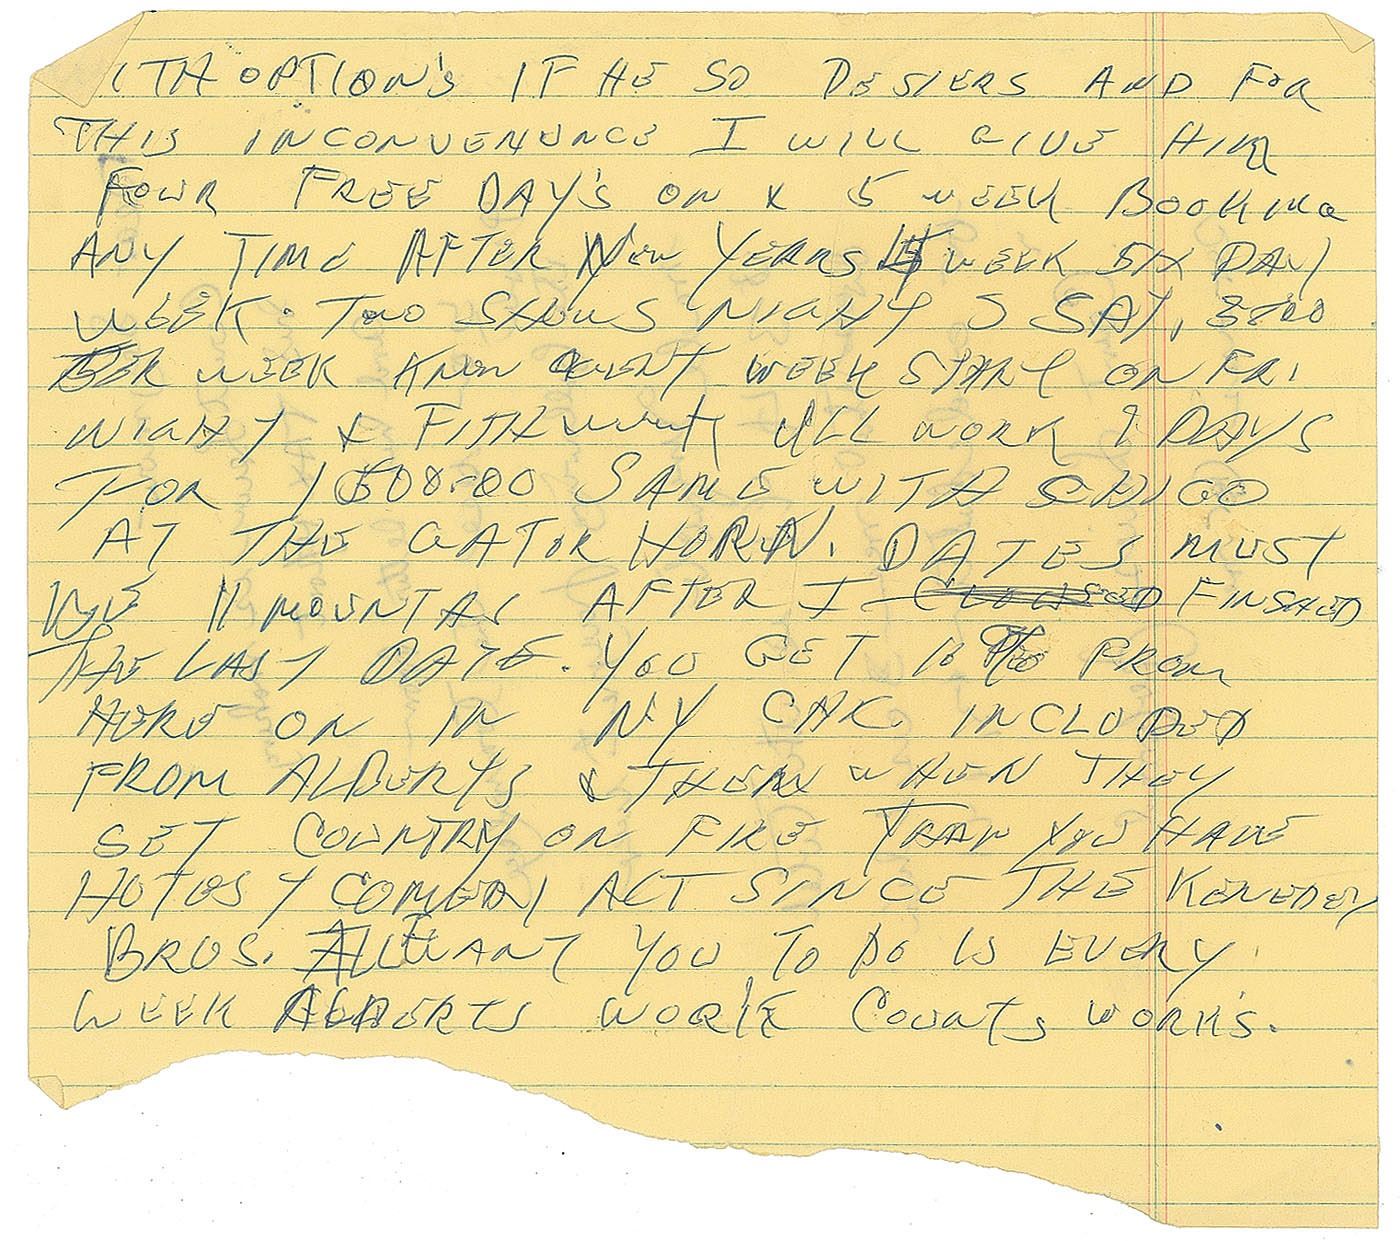 ITH OPTION'S IF HE SO DESIERS AND FOR
THIS INCONVENENCE I WILL GIVE HIM
FOUR FREE DAY'S ON 5 WEEK BOOKING
ANY TIME AFTER NEW YEARS WEEK SIX DAY
WEEK. TWO SHOWS NIGHT 3 SAT,
PER WEEK WEEK START ON FRI
NIGHT & FITH I'LL WORK 9 DAYS
FOR SAME WITH CHICO
AT THE GATOR HORN. DATES MUST
BE 11 MOUNTHS AFTER I FINSHED
THE LAST DATE. YOU GET 10% FROM
HERE ON IN N.Y CHK. INCLUDED
FROM ALBERTS & THEN WHEN THEY
SET COUNTRY ON FIRE THAN YOU HAVE
HOTEST COMEDY ACT SINCE THE KENEDEY
BROS. ALL WANT YOU TO DO IS EVERY
WEEK ALBERTS WORK COUNTS WORKS.